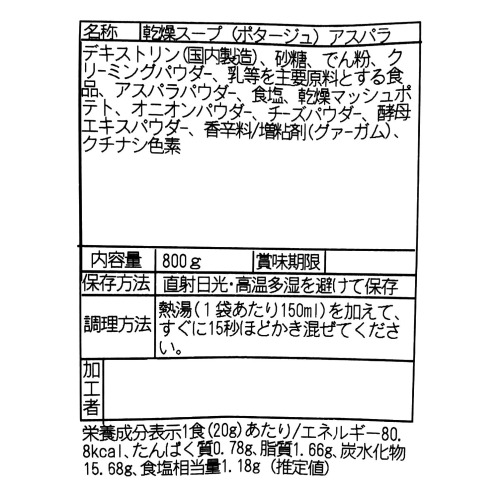 名称 乾燥スープ（ポタージュ）アスパラ
デキストリン(国内製造)、砂糖、でん粉、ク
リーミングパウダー、乳等を主要原料とする食
品、アスパラパウダー、食塩、乾燥マッシュポ
テト、オニオンパウダー、チーズパウダー、酵母
エキスパウダー、香辛料/増粘剤(グァーガム)、
クチナシ色素
内容量 800ｇ 賞味期限
保存方法 直射日光・高温多湿を避けて保存
調理方法 熱湯(１袋あたり150ml)を加えて、
すぐに15秒ほどかき混ぜてくださ
い。
加工者
栄養成分表示1食(20g)あたり/エネルギー80.
8kcal、たんぱく質0.78g、脂質1.66g、炭水化物
15.68g、食塩相当量1.18g（推定値）